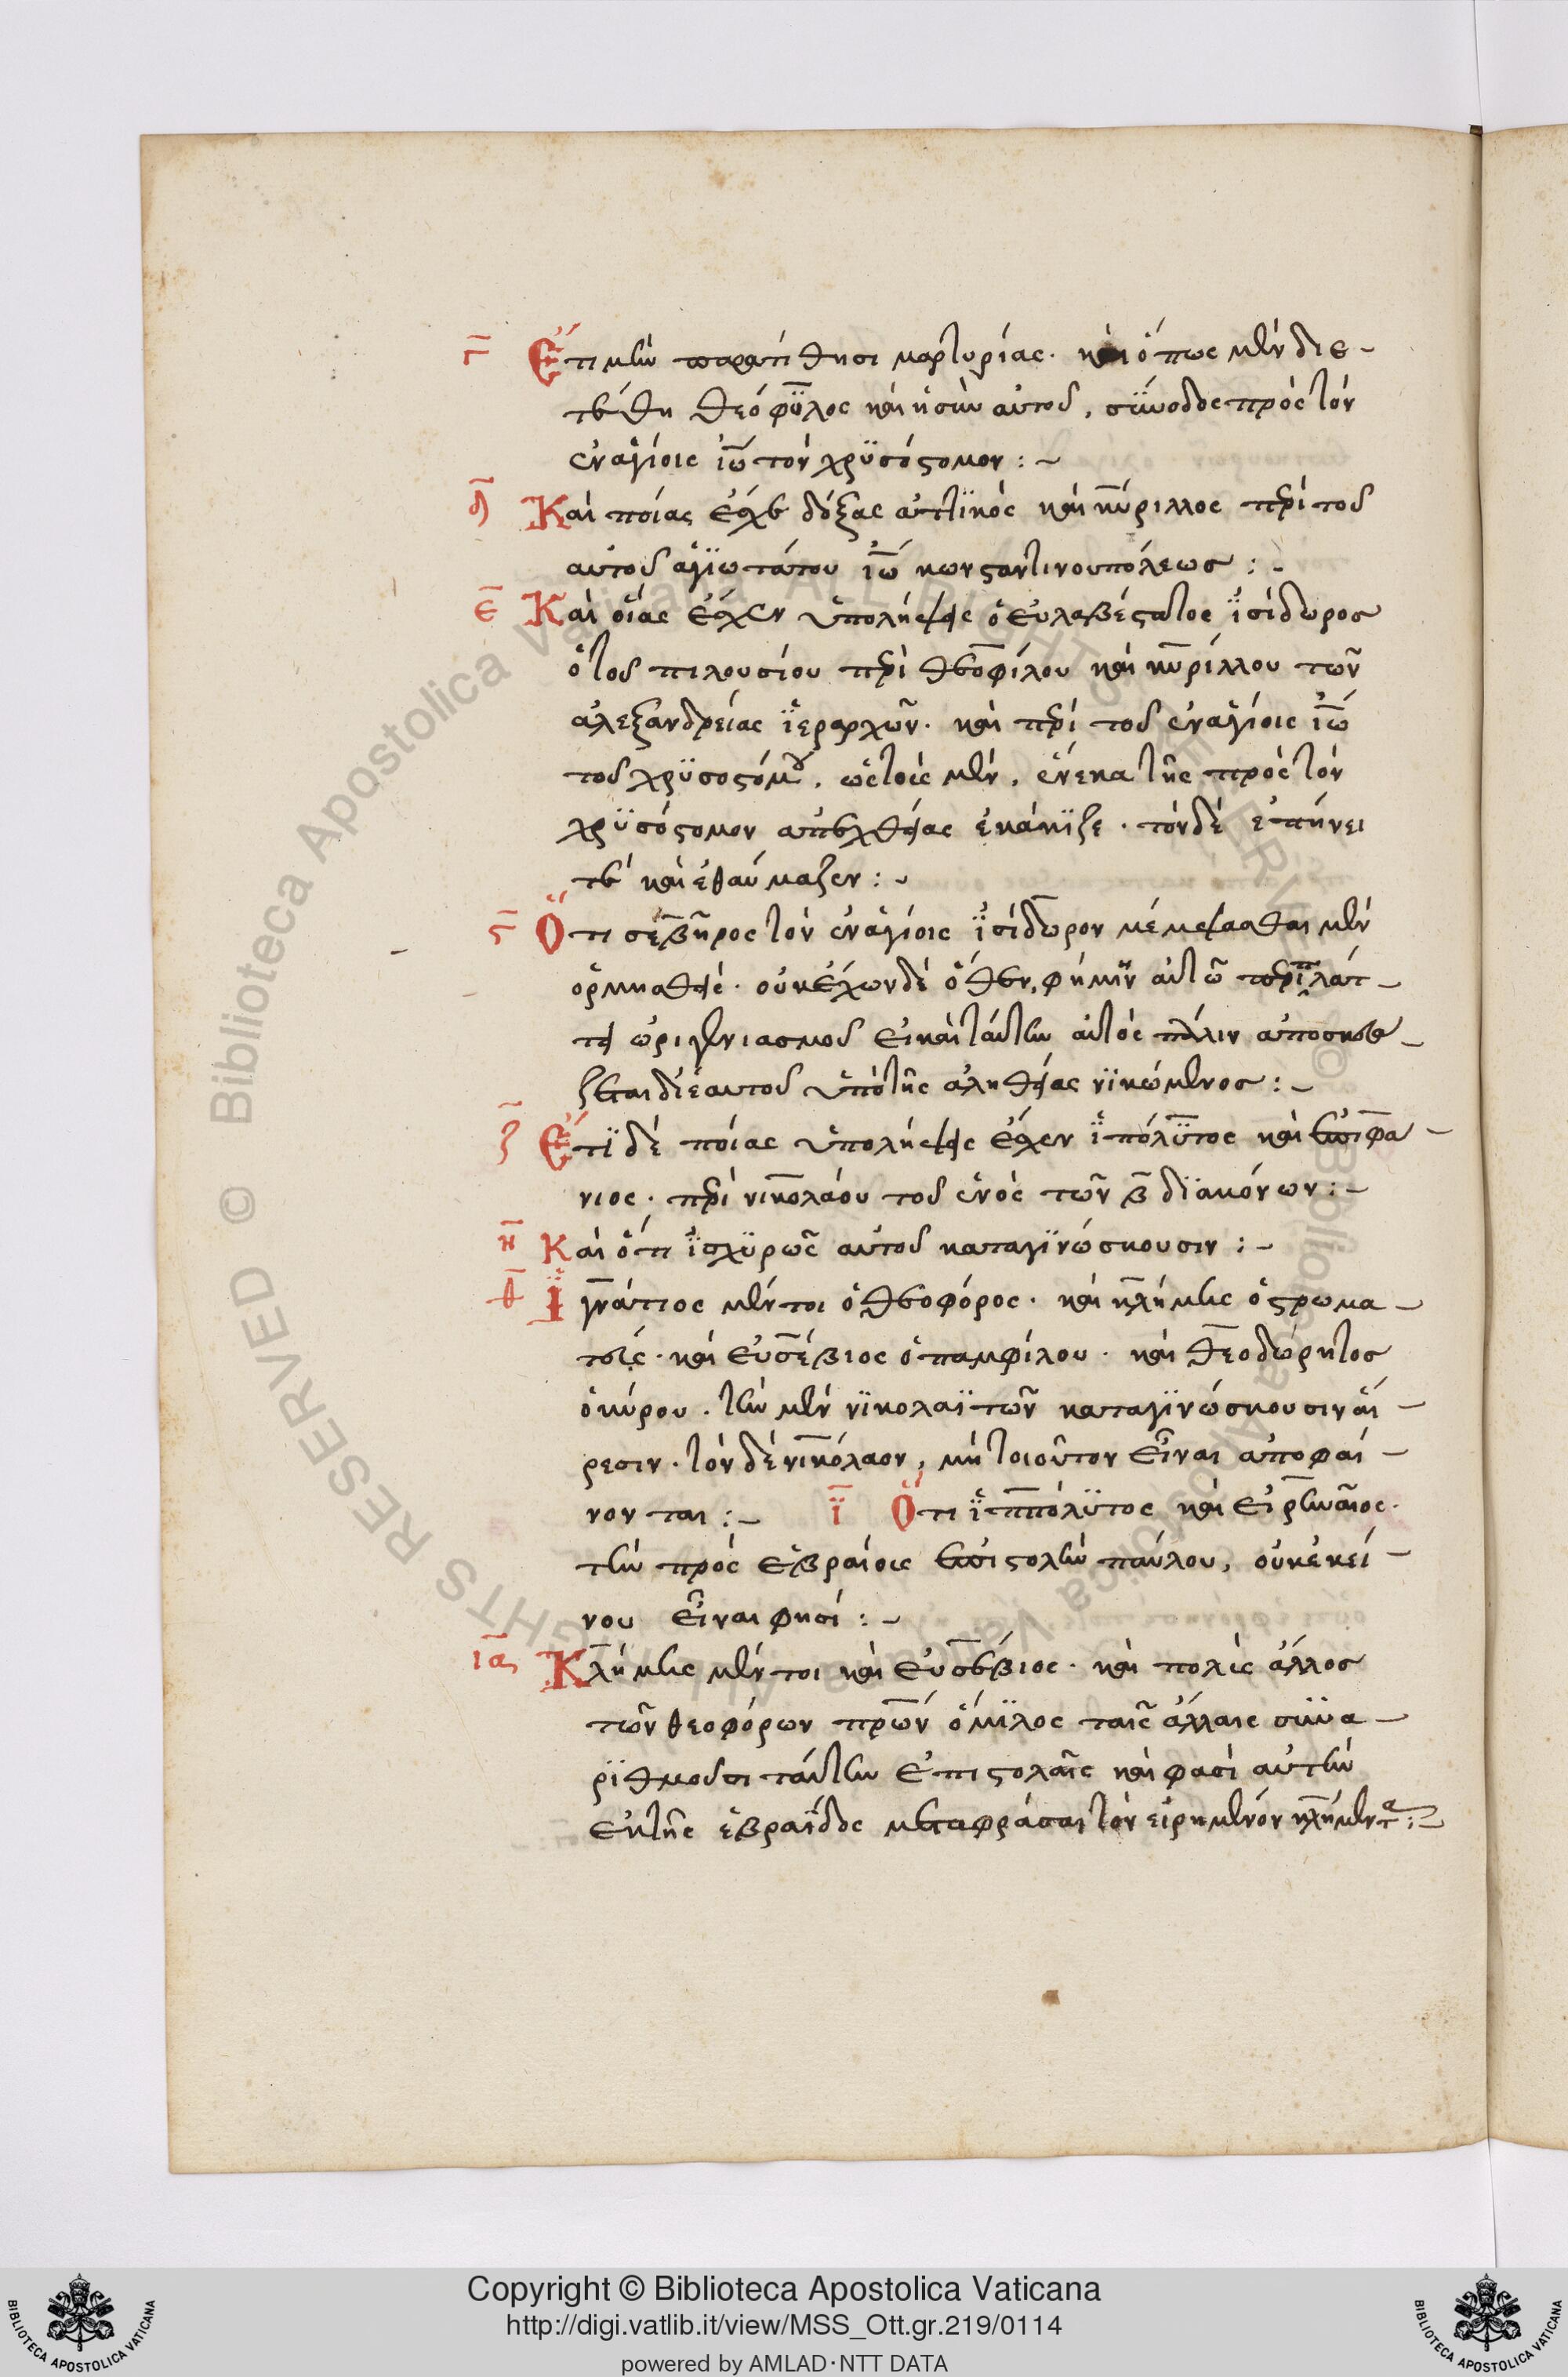 γ Ἔτι μὴν παρατίθησι μαρτυρίας· καὶ ὅπως μὲν διε-
τέθη θεόφϋλος καὶ ἡ σὺν αὐτοῦ, σύνοδος πρὸς τὸν
ἐν ἁγίοις ἰω τὸν χρϋσόστομον:-
δ Καὶ ποίας ἔχει δόξας ἀττϊκὸς καὶ κύριλλος περὶ τοῦ
αὐτοῦ ἁγϊωτάτου ἰω κωνσταντινουπόλεως:-
ε Καὶ οἵας ἔχεν ὑπολήψεις ὁ εὐλαβέστατος ἰσίδωρος
ὁ τοῦ πιλουσίου περὶ θεοφίλου καὶ κυρίλλου τῶν
ἀλεξανδρείας ἱεραρχῶν· καὶ περὶ τοῦ ἐν ἁγίοις ἰω
τοῦ χρϋσοστόμου, ὡς τοὺς μὲν, ἕνεκα τῆς πρὸς τὸν
χρϋσόστομον ἀπεχθείας ἐκάκϊζε· τὸν δὲ ἐπήνει
τε καὶ ἐθαύμαζεν:-
ς Ὅτι σεβῆρος τὸν ἐν ἁγίοις ἰσίδωρον μέμψασθαι μὲν
ὁρμηθείς· οὐκ ἔχων δὲ ὅθεν, φήμϊν αὐτῶ περιπλάτ-
τει ὠριγενιασμοῦ εἰ καὶ ταύτην αὐτὸς πάλιν ἀποσκευά
ζεται δι' ἑαυτοῦ ὑπὸ τῆς ἀληθείας νϊκώμενος:-
ζ Ἔτϊ δὲ ποίας ὑπολήψεις ἔχεν ἱπόλϋτος καὶ ἐπιφα-
νιος· περὶ νικολάου τοῦ ἑνὸς τῶν ζ δϊακόνων:-
η Καὶ ὅτι ἰσχϋρῶς αὐτοῦ καταγϊνώσκουσιν:-
θ Ἰγνάτιος μέντοι ὁ θεοφόρος· καὶ κλήμης ὁ στρωμα-
τεύς· καὶ εὐσέβιος ὁ παμφίλου· καὶ θεοδώρητος
ὁ κύρου. τὴν μὲν νϊκολαϊτῶν καταγϊνώσκουσιν αἵ-
ρεσιν· τὸν δὲ νικόλαον, μὴ τοιοῦτον εἶναι ἀποφαί-
νονται:- ϊ Ὅτι ἱππόλϋτος καὶ εἰρηναῖος·
τὴν πρὸς ἑβραίοις ἐπιστολὴν παύλου, οὐκ ἐκεί-
νου εἶναι φησί:-
ια Κλήμης μέντοι καὶ εὐσέβιος· καὶ πολὺς ἄλλος
τῶν θεοφόρων πρων ὅμϊλος ταῖς ἄλλαις συνα-
ρϊθμοῦσι ταύτην ἐπιστολαῖς καὶ φασὶ αὐτὴν
ἐκ τῆς ἑβραΐδος μεταφράσαι τὸν εἰρημένον κλήμεντα:-
Biblioteca Apostolica Vaticana
ALL RIGHTS RESERVED ©
Copyright © Biblioteca Apostolica Vaticana
http://digi.vatlib.it/view/MSS_Ott.gr.219/0114
powered by AMLAD·NTT DATA
BIBLIOTECA APOSTOLICA VATICANA
BIBLIOTECA APOSTOLICA VATICANA